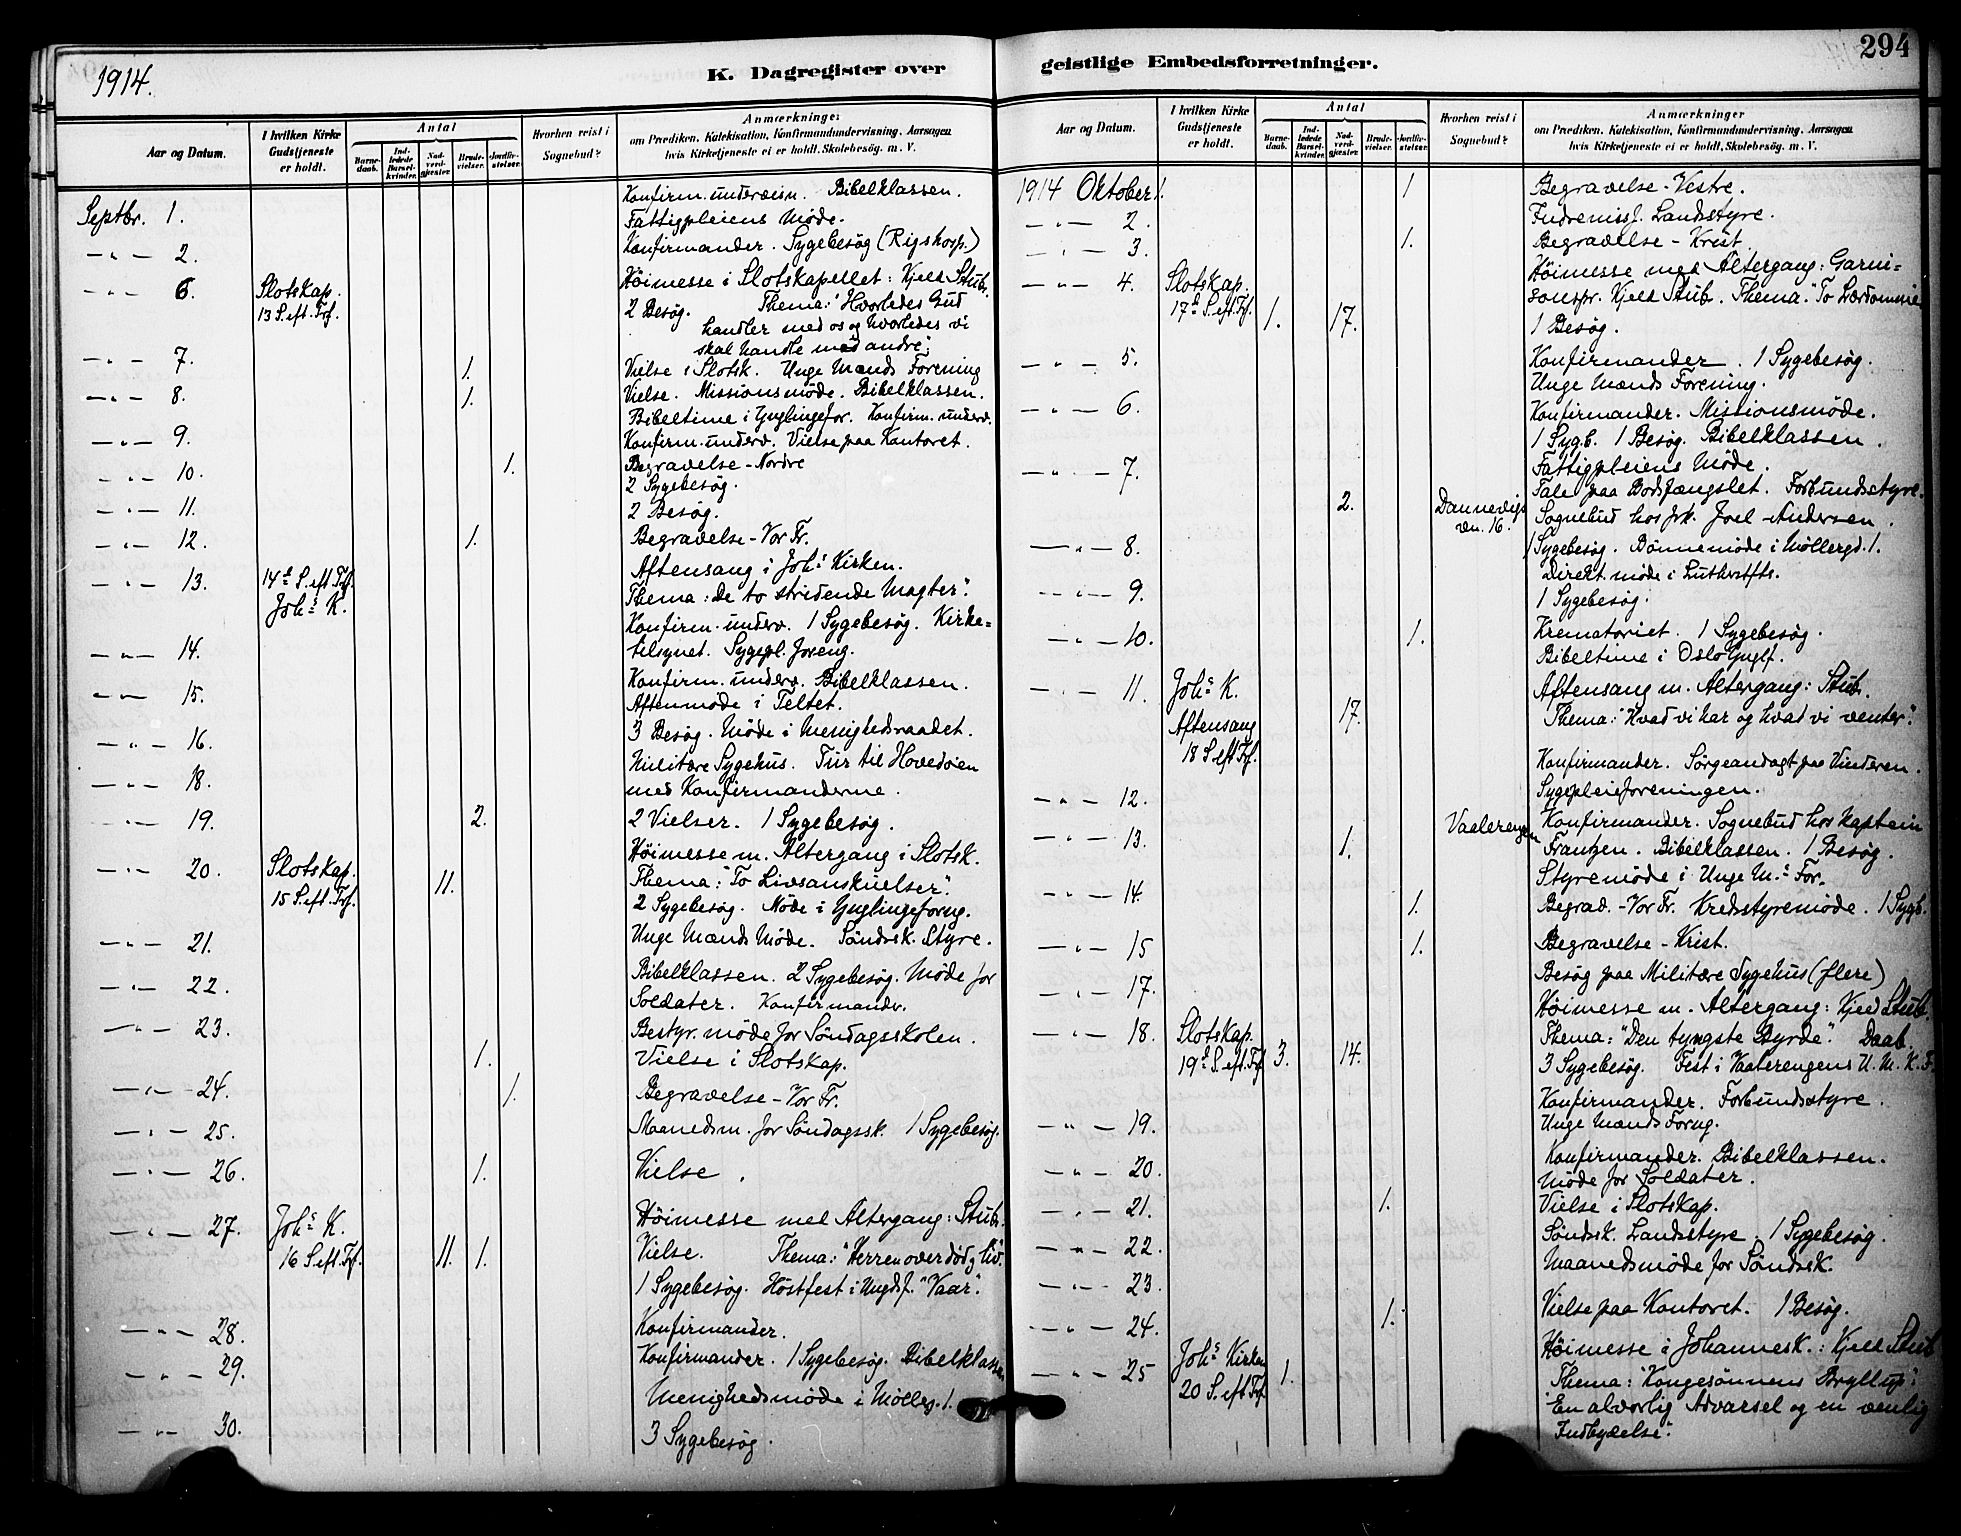 1914.
K. Dagregister over
Aar og Datum.
I hvilken Kirke
Gudstjeneste
er holdt.
Antal
Barne-
daab.
Ind-
ledede
Barsel-
kvinder.
Nad-
verd-
gjæster.
Brude-
vielser.
Jordfæ-
stelser.
Hvorhen reist i
Sognebud?
Anmærkninger
om Prædiken, Katekisation, Konfirmandundervisning, Aarsagen
hvis Kirketjeneste ei er holdt, Skolebesøg. m. V.
Septbr. 1. Konfirm.undervisn. Bibelklassen.
Fattigpleiens Møde.
— " — 2. Konfirmander. Sygebesøg (Rigshosp.)
— " — 6. Slotskap. Høimesse i Slotskapellet: Kjeld Stub.
13 S. eft. Trf. 2 Besøg. Thema: "Hvorledes Gud
handler med os og hvorledes vi
skal handle med andre".
— " — 7. 1. Vielse i Slotsk. Unge Mænds Forening
— " — 8. 1. Vielse. Missionsmøde. Bibelklassen.
Bibeltime i Ynglingefor. Konfirm. underv.
— " — 9. Konfirm.underv. Vielse paa Kontoret.
— " — 10. 1. Begravelse - Nordre
2 Sygebesøg.
— " — 11. 2 Besøg.
— " — 12. 1. Begravelse - Vor Fr.
— " — 13. 14d S. eft. Trf. Aftensang i Joh.s Kirken.
Joh.s K. Thema: "De to stridende Magter".
Konfirm. underv. 1 Sygebesøg. Kirke=
— " — 14. tilsynet. Sygepl. foreng.
Konfirm. underv. Bibelklassen.
— " — 15. Aftenmøde i Teltet.
— " — 16. 3 Besøg. Møde i Menighedsraadet.
Militære Sygehus. Tur til Hovedøen
— " — 18. med Konfirmanderne.
— " — 19. 2. 2 Vielser. 1 Sygebesøg.
Høimesse m. Altergang i Slotsk.
— " — 20. Slotskap. 11. Thema: "To Livsanskuelser".
15 S. eft. Trf. 2 Sygebesøg. Møde i Ynglingeforng.
— " — 21. Unge Mænds Møde. Søndsk. Styre.
— " — 22. Bibelklassen. 2 Sygebesøg. Møde for
Soldater. Konfirmander.
— " — 23. Bestyr. møde for Søndagsskolen.
1. Vielse i Slotskap.
— " — 24. 1. Begravelse - Vor Fr.
— " — 25. Maanedsm. for Søndagssk. 1 Sygebesøg.
— " — 26. 1. Vielse.
— " — 27. Joh.s K. Høimesse med Altergang: Stub.
16 S. eft. Trf. 11. 1. Vielse. Thema: "Herren over død og liv".
1 Sygebesøg. Høstfest i Ungdsf. "Vaar".
— " — 28. Konfirmander.
— " — 29. Konfirmander. 1 Sygebesøg. Bibelklassen
Menighedsmøde i Møllerg. 1.
— " — 30. 3 Sygebesøg.
geistlige Embedsforretninger.
294
Aar og Datum.
I hvilken Kirke
Gudstjeneste
er holdt.
Antal
Barne-
daab.
Ind-
ledede
Barsel-
kvinder.
Nad-
verd-
gjæster.
Brude-
vielser.
Jordfæ-
stelser.
Hvorhen reist i
Sognebud?
Anmærkninger
om Prædiken, Katekisation, Konfirmandundervisning, Aarsagen
hvis Kirketjeneste ei er holdt, Skolebesøg. m. V.
1914 Oktober 1. 1. Begravelse - Vestre.
— " — 2. Indremissj. Landsstyre.
— " — 3. 1. Begravelse - Krist.
— " — 4. Slotskap. Høimesse med Altergang: Garni=
17d S. eft. Trf. 1. 17. sonspr. Kjeld Stub. Thema: "To Lærdomme
1 Besøg.
— " — 5. Konfirmander. 1 Sygebesøg.
Unge Mænds Forening.
— " — 6. Konfirmander. Missionsmøde.
1 Sygb. 1 Besøg. Bibelklassen.
— " — 7. Fattigpleiens Møde.
Tale paa Bodsfængslet. Forbundsstyre.
2. Dannevigs Sognebud hos frk. Joel-Andersen.
vn. 16.
— " — 8. 1 Sygebesøg. Bønnemøde i Møllergd. 1.
Direkt. møde i Lutherstfts.
— " — 9. 1 Sygebesøg.
— " — 10. 1. Krematoriet. 1 Sygebesøg.
Bibeltime i Oslo Ynglf.
— " — 11. Joh.s K. Aftensang m. Altergang: Stub.
Aftensang 17. Thema: "Hvad vi har og hvad vi venter".
18 S. eft Trf.
Konfirmander. Sørgeandagt paa Vinderen.
— " — 12. Sygepleieforeningen.
— " — 13. 1. Vaalerengen Konfirmander. Sognebud hos Kaptein
Frantzen. Bibelklassen. 1 Besøg.
Styremøde i Unge M.s For.
— " — 14. 1. Begrav. - Vor Fr. Kredsstyremøde. 1 Sygb.
— " — 15 1. Begravelse - Krist.
— " — 17. Besøg paa Militære Sygehus (flere)
Høimesse m. Altergang: Kjeld Stub.
— " — 18. Slotskap. Thema: "Den tyngste Byrde". Daab.
19d S. eft. Trf 3. 14. 3 Sygebesøg. Fest i Vaalerengens U. M. K. F.
Konfirmander. Forbundsstyre.
— " — 19. Unge Mænds Forng.
— " — 20. Konfirmander. Bibelklassen.
Møde for Soldater.
— " — 21. 1. Vielse i Slotskap.
— " — 22. Søndsk. Landsstyre. 1 Sygebesøg.
— " — 23. Maanedsmøde for Søndsk.
— " — 24. 1. Vielse paa Kontoret. 1 Besøg.
— " — 25 Joh.s Kirken 1. Høimesse i Johannesk.: Kjell Stub
20 S. eft Trf. Thema: "Kongesønnens Bryllup:
En alvorlig Advarsel og en venlig
Indbydelse".